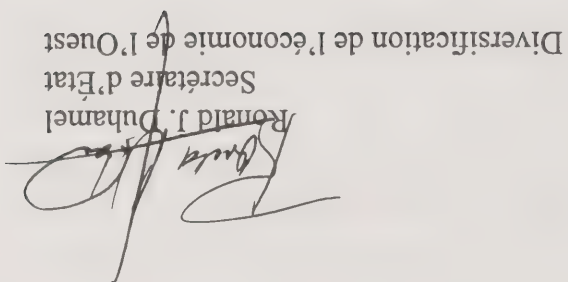 Ronald J. Duhamel
Secrétaire d'État
Diversification de l'économie de l'Ouest